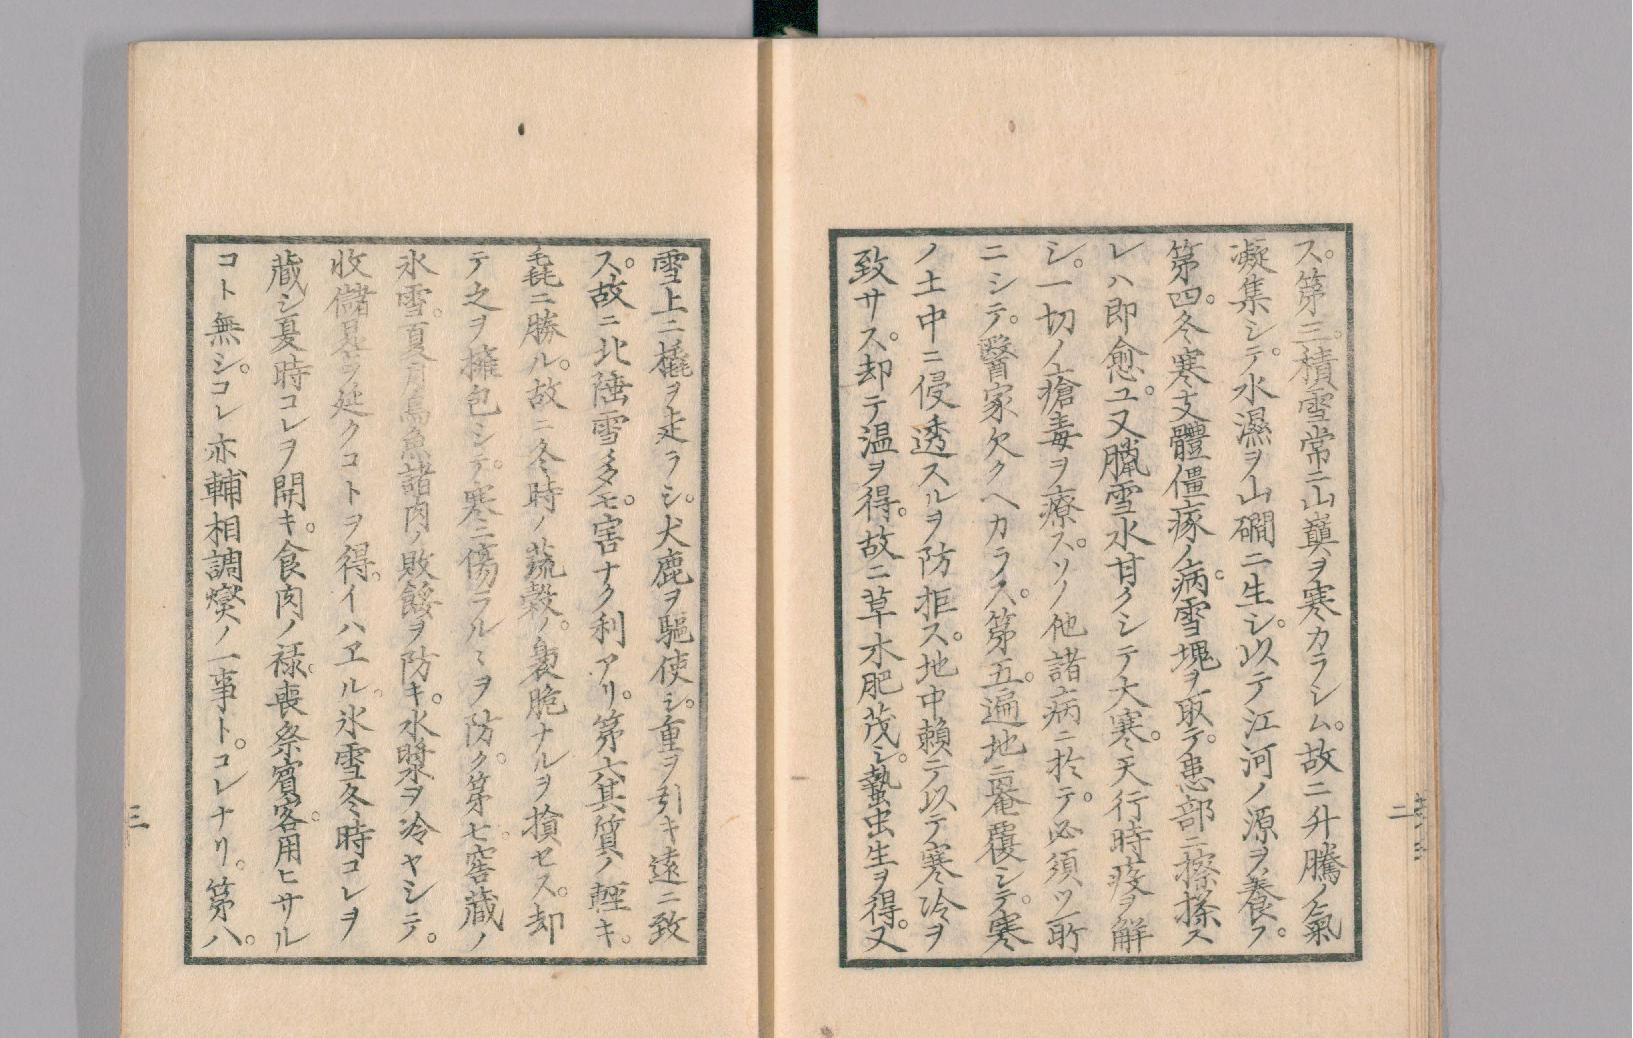 ス。第三。積雪常ニ山巓ヲ寒カラシム。故ニ升騰ノ氣
凝集シテ。水濕ヲ山磵ニ生シ。以テ江河ノ源ヲ養フ。
第四。冬寒支體僵瘃ノ病。雪塊ヲ取テ。患部ニ擦搽ス
レハ即愈ユ。又臘雪水甘クシテ大寒。天行時疫ヲ解
シ。一切ノ瘡毒ヲ療ス。ソノ他諸病ニ於テ。必須ツ所
ニシテ。醫家欠クヘカラス。第五。遍地ニ罨覆シテ。寒
ノ土中ニ侵透スルヲ防拒ス。地中頼テ以テ寒冷ヲ
致サス。却テ温ヲ得。故ニ草木肥茂シ。蟄虫生ヲ得。又
雪上ニ橇ヲ走ラシ。犬鹿ヲ驅使シ。重ヲ引キ遠ニ致
ス。故ニ北陲雪多モ。害ナク利アリ。第六其質ノ輕キ。
毛毳ニ勝ル。故ニ冬時ノ蔬穀ノ。褭脆ナルヲ損セス。却
テ之ヲ擁包シテ。寒ニ傷ラルヽヲ防ク。第七。窖藏ノ
氷雪。夏月鳥魚諸肉ノ敗餒ヲ防キ。水漿ヲ冷ヤシテ。
收儲晷ヲ延クコトヲ得。イハヱル。氷雪冬時コレヲ
藏シ夏時コレヲ開キ。食肉ノ祿。喪祭賓客。用ヒサル
コト無シ。コレ亦輔相調燮ノ一事ト。コレナリ。第八。
二
三